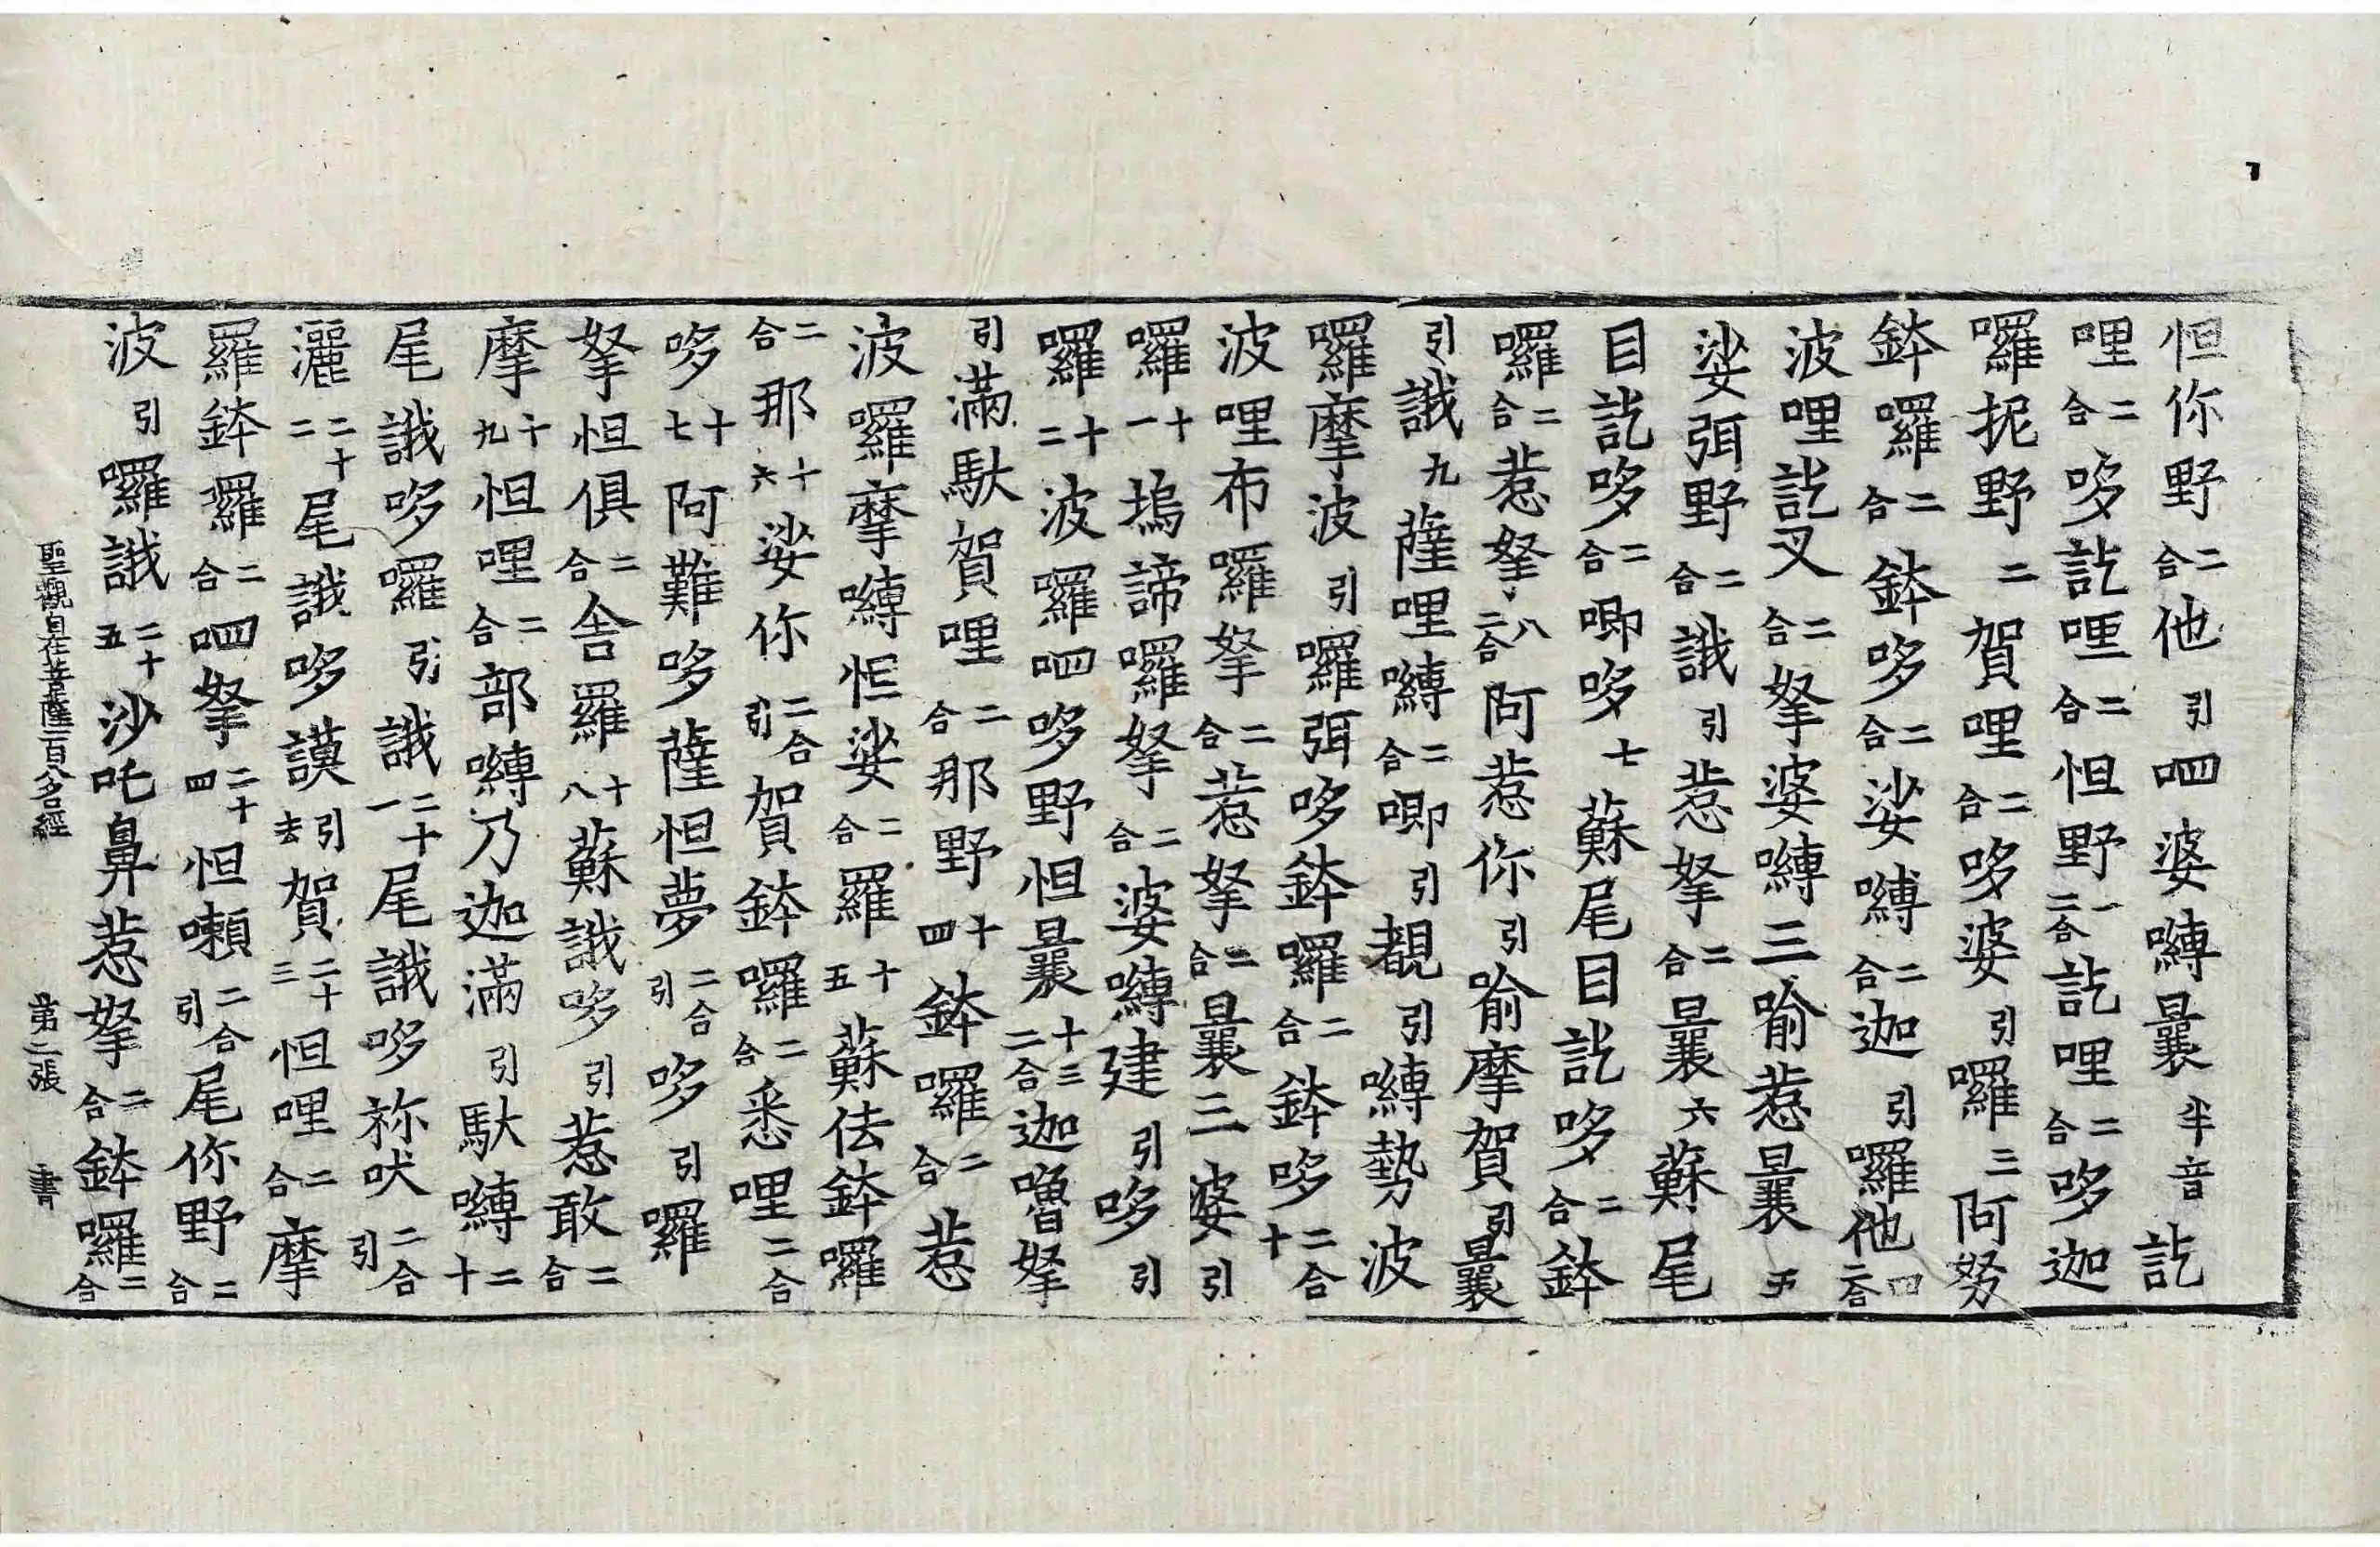 怛你野二合他引呬婆嚩曩半音訖
哩二合哆訖哩二合怛野一二合訖哩二合哆迦
囉抳野二賀哩二合哆婆引囉三阿努
鉢囉二合鉢哆二合娑嚩二合迦引囉他四二合
波哩訖叉二合拏婆嚩三喻惹曩五
娑弭野二合誐引惹拏二合曩六蘇尾
目訖哆二合唧哆七蘇尾目訖哆二合鉢
囉二合惹拏八二合阿惹你引喻摩賀引曩
引誐九薩哩嚩二合唧引覩引嚩勢波
囉摩波引囉弭哆鉢囉二合鉢哆二合十
波哩布囉拏二合惹拏二合曩三婆引
囉十一塢諦囉拏二合婆嚩建引哆引
囉十二波囉呬哆野怛曩十三二合迦嚕拏
引滿馱賀哩二合那野十四鉢囉二合惹
波囉摩嚩怛娑二合羅十五蘇佉鉢囉
二合那十六娑你二合引賀鉢囉二合悉哩二合
哆十七阿難哆薩怛夢二合引哆引囉
拏怛俱二合舍羅十八蘇誐哆引惹敢二合
摩十九怛哩二合部嚩乃迦滿引馱嚩二十
尾誐哆囉引誐二十一尾誐哆祢吠二合引
灑二十二尾誐哆謨引去賀二十三怛哩二合摩
羅鉢囉二合呬拏二十四怛嚩二合引尾你野二合
波引囉誐二十五沙吒鼻惹拏二合鉢囉二合
聖觀自在菩薩一百八名經 第二張 書
7